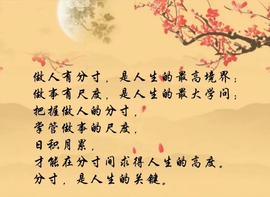 做人有分寸，是人生的最高境界；
做事有尺度，是人生的最大学问；
把握做人的分寸，
掌管做事的尺度，
日积月累，
才能在分寸间求得人生的高度。
分寸，是人生的关键。